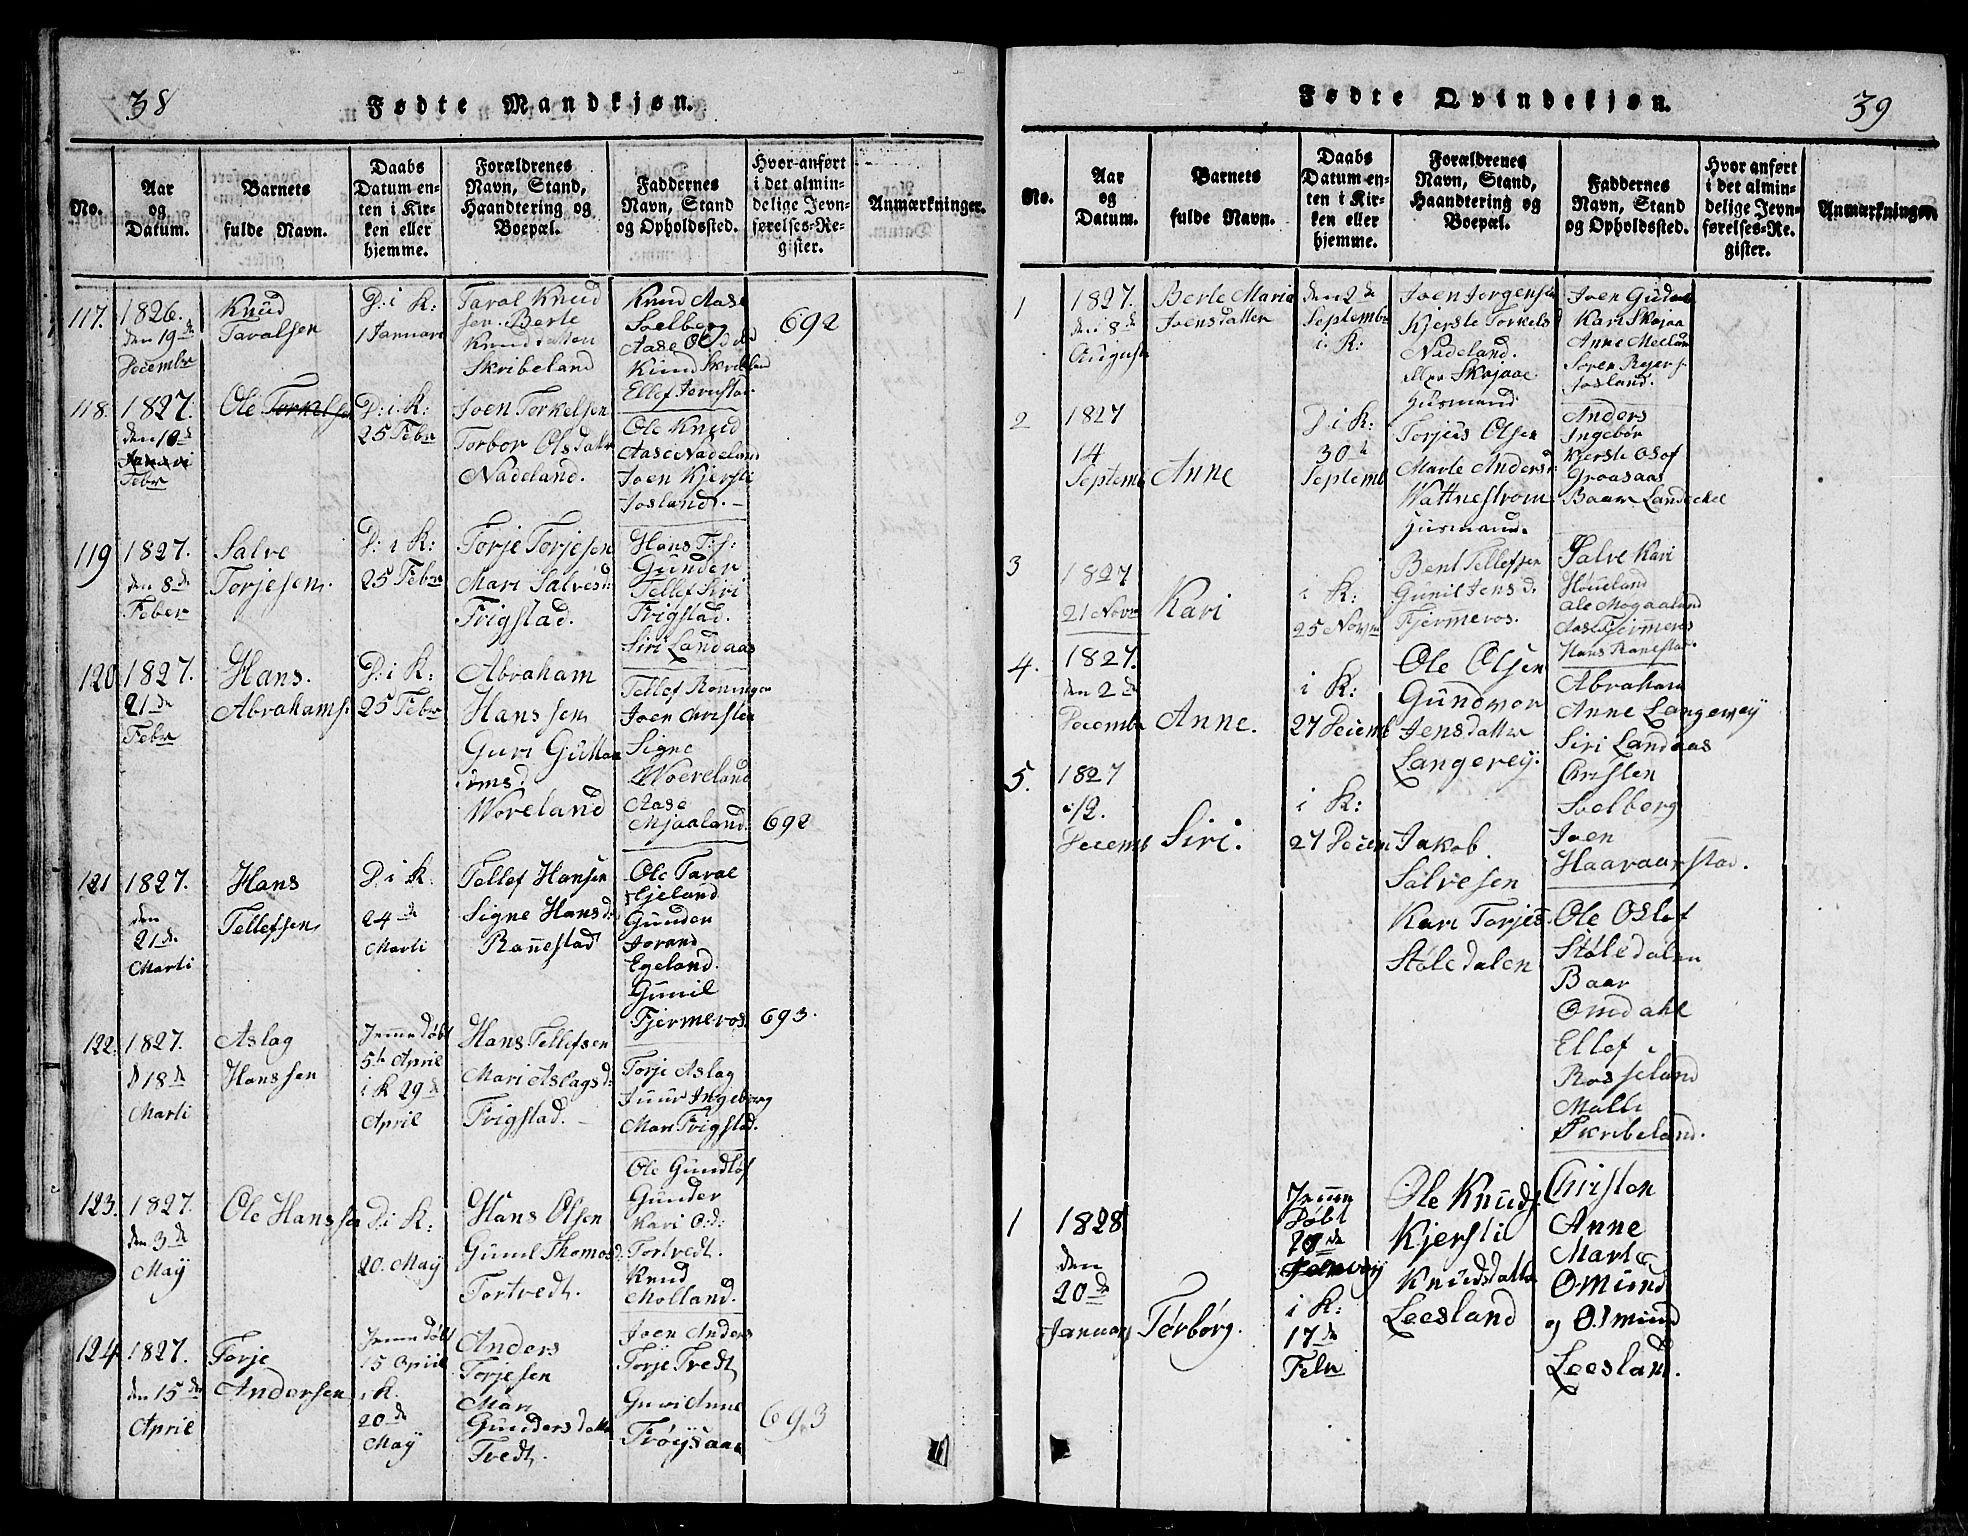 38
Fødte Mandkjøn.
No.
Aar
og
Datum.
Barnets
fulde Navn.
Daabs
Datum en-
ten i Kir-
ken eller
hjemme.
Forældrenes
Navn, Stand,
Haandtering og
Boepæl.
Faddernes
Navn, Stand
og Opholdssted.
Hvor anført
i det almin-
delige Jevn-
førelses-Re-
gister.
Anmærkninger.
117.
1826.
den 19de
Decembr
Knud
Taralsen
D: i K:
1 Januari
Taral Knud
sen. Berte
Knudsdatter
Skribeland
Knud Aase
Soelberg
Aase
Knud Skribeland
Ellef
692
118.
1827.
den 10d
Febr
Ole Torkelsen
D: i K:
25 Febr
Joen Torkelsen
Torbor Olsdatter
Nadeland.
Ole Knud
Aase Nadeland
Joen Kjersti
Josland.
119
1827.
den 8de
Feber
Salve
Torjesen
D: i K:
25 Febr
Torje Torjesen
Mari Salvesd
Frigstad.
Hans T: s:
Gunder
Tellef Siri
Frigstad.
Siri Landaas
120
1827.
21de
Febr
Hans.
Abrahams.
D: i K:
25 Febr
Abraham
Hanssen
Guri Guttor
ms d.
Woreland
Tellef Roningen
Joen Christen
Signe
Woreland
Aase
Mjaaland.
692
121
1827.
den
21de
Marti
Hans
Tellefsen
D. i K.
24de
Marti
Tellef Hansen
Signe Hansd:
Rannestad
Ole Taral
Egeland
Gunder
Jorand
Egeland.
Gunil
Fjermeros.
693.
122.
1827.
d 18de
Marti
Aslag
Hanssen
Jemme døbt
5te April
i K 29de
April
Hans Tellefsen
Mari Aslagsd:
Frigstad.
Torje Aslag
Juur Ingeborg
Mari Frigstad.
123.
1827.
den 3de
May
Ole Hanssen
D. i K:
20. May
Hans Olsen
Gunil Thomasd:
Tortvedt.
Ole Gundlof
Gunder
Kari O: d:
Tortvedt.
Knud
Molland.
124
1827.
den 15de
April
Torje
Andersen
Jemme døbt
15 April
i K.
20de
May
Anders
Torjesen
Mari
Gundersdatter
Tvedt.
Joen Anders
Torje Tvedt
Guri Anne
Trøysaae
693
Fødte Qvindekjøn.
39
No.
Aar
og
Datum.
Barnets
fulde Navn.
Daabs
Datum en-
ten i Kir-
ken eller
hjemme.
Forældrenes
Navn, Stand,
Haandtering og
Boepæl.
Faddernes
Navn, Stand
og Opholdssted.
Hvor anført
i det almin-
delige Jevn-
førelses-Re-
gister.
Anmærkninger.
1
1827.
den 8de
August
Berte Maria
Joensdatter
den 2de
Septembr
i K:
Joen Jorgensen
Kjerste Torkelsd
Nadeland.
eller Skajaae
Husmand
Joen
Kari Skajaa
Anne
Soren
Josland.
2
1827
14
Septemb
Anne
D: i K:
30te
Septemb
Torjus Olsen
Marte Andersd:
Wattnestrom
Husmand.
Anders
Ingebor
Kjerste Osof
Groasaas
Baar Landeskel
3
1827
21 Novr
Kari
i K:
25 Novm
Bent Tellefsen
Gunil Jens d.
Fjermeros.
Salve Kari
Høueland
Ole Mogaaland
Aase Fjermeros
Hans Ranestad.
4.
1827.
den 2de
Decembr
Anne.
i K:
27 Decemb
Ole Olsen
Gundvor
Jensdatter
Langevey:
Abraham
Anne Langevey
Siri Landaas
Christen
Soelberg
Joen
Haavaarstad.
5.
1827
12.
Decemb
Siri.
i K:
27 Decem
Jakob
Salvesen
Kari Torjesd.
Støledalen
Ole Oslof
Støledalen
Baar
Omdahl
Ellef
Rosseland
Malli
Skribeland.
1
1828
den
20de
Januar
Torborg.
Jemme
Døbt
20de
i K:
17de
Febr
Ole Knuds.
Kjersti
Knudsdatter
Leesland
Christen
Anne
Marte
Omund
og Osmund
Leesland.